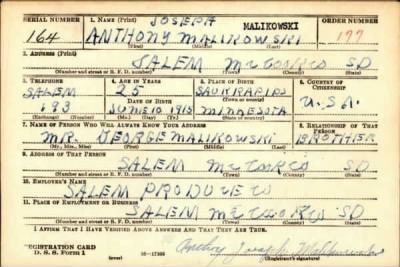 SERIAL NUMBER 1. NAME (Print) JOSEPH MALIKOWSKI ORDER NUMBER
164 ANTHONY MALIKOWSKI 177
(First) (Middle) (Last)
2. ADDRESS (Print)
SALEM McCOOK CO SD
(Number and street or R. F. D. number) (Town) (County) (State)
3. TELEPHONE 4. AGE IN YEARS 5. PLACE OF BIRTH 6. COUNTRY OF CITIZENSHIP
SALEM 25 SAUK RAPIDS
DATE OF BIRTH (Town or county) U.S.A.
193 JUNE 10 1915 MINNESOTA
(Exchange) (Number) (Mo.) (Day) (Yr.) (State or country)
7. NAME OF PERSON WHO WILL ALWAYS KNOW YOUR ADDRESS 8. RELATIONSHIP OF THAT PERSON
MR. GEORGE MALIKOWSKI BROTHER
(Mr., Mrs., Miss) (First) (Middle) (Last)
9. ADDRESS OF THAT PERSON
SALEM McCOOK CO SD
(Number and street or R. F. D. number) (Town) (County) (State)
10. EMPLOYER'S NAME
SALEM PRODUCE CO
11. PLACE OF EMPLOYMENT OR BUSINESS
SALEM McCOOK CO SD
(Number and street or R. F. D. number) (Town) (County) (State)
I AFFIRM THAT I HAVE VERIFIED ABOVE ANSWERS AND THAT THEY ARE TRUE.
REGISTRATION CARD
D. S. S. Form 1 (over) Anthony Joseph Malikowski
(Registrant's signature)